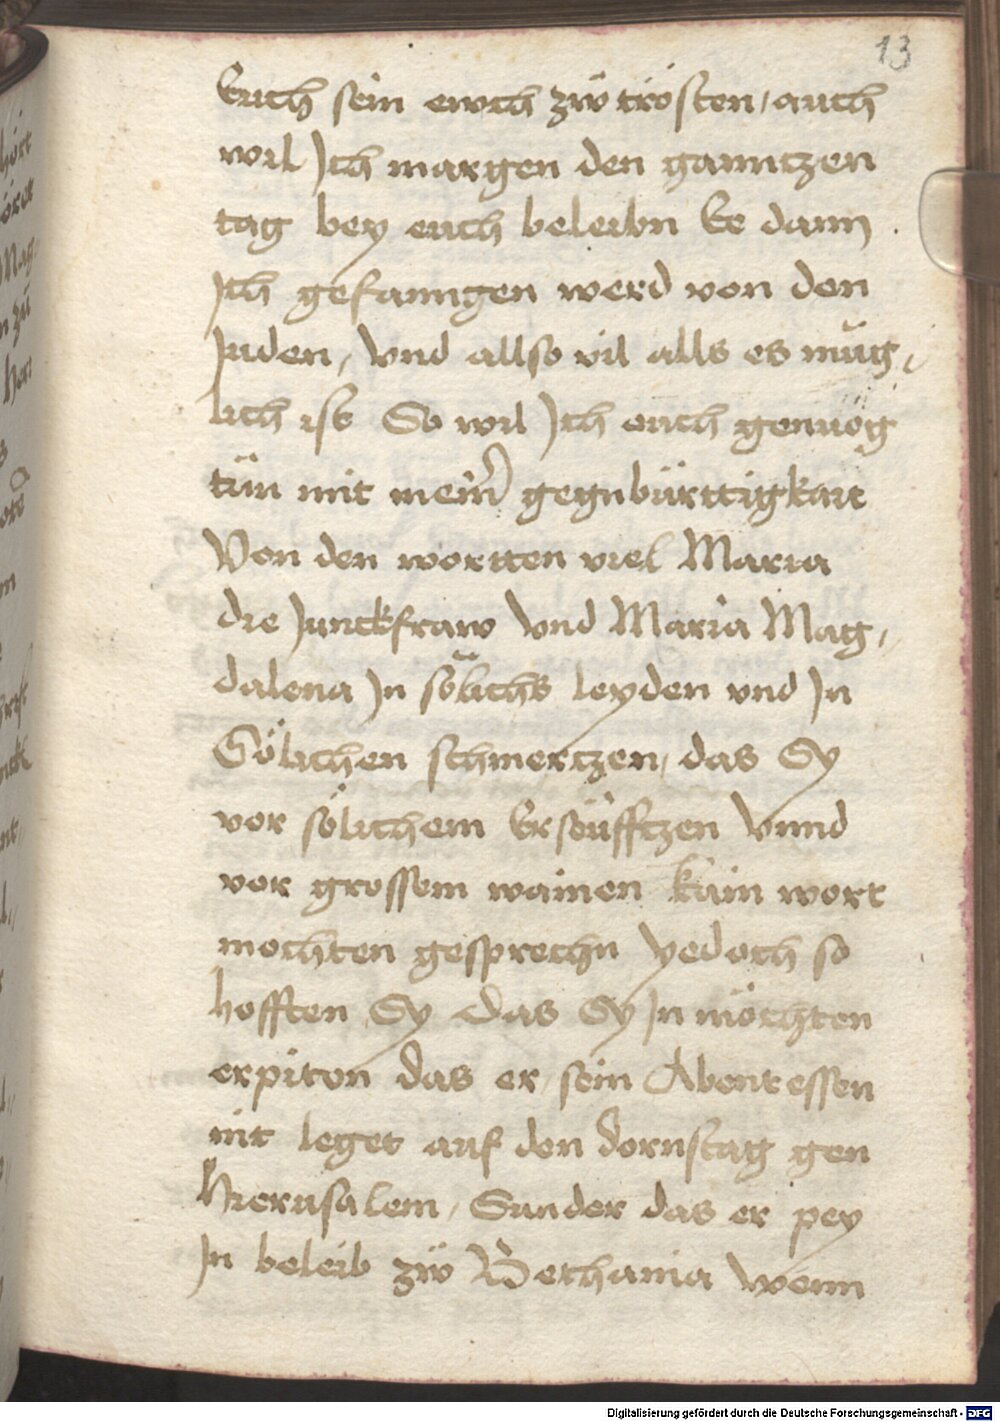 13
Euch sein ewch zw̎ trösten / auch
wil Jch margen den ganntzen
tag bey euch beleibn Ee dann
Jch gefanngen werd von den
Juden / vnd allso vil alls es müg /
lich ist So wil Jch euch genuog
tün mit mein̄ gegnbürttigkait
Von den wortten viel Maria
die Junckfraw vnd Maria Mag /
dalena Jn sölichs leyden vnd Jn
Sölichen schmertzen / das Sy
vor sölichem Ersöufftzen vnnd
vor grossem wainen kain wort
mochten gesprechn yedoch so
hofften Sy das Sy Jn möchten
erpiten das er sein Abentessen
nit leget auf den dornstag gen
Hierusalem / Sunder das er pey
Jn beleib zw̎ Bethania wenn
Digitalisierung gefördert durch die Deutsche Forschungsgemeinschaft - DFG